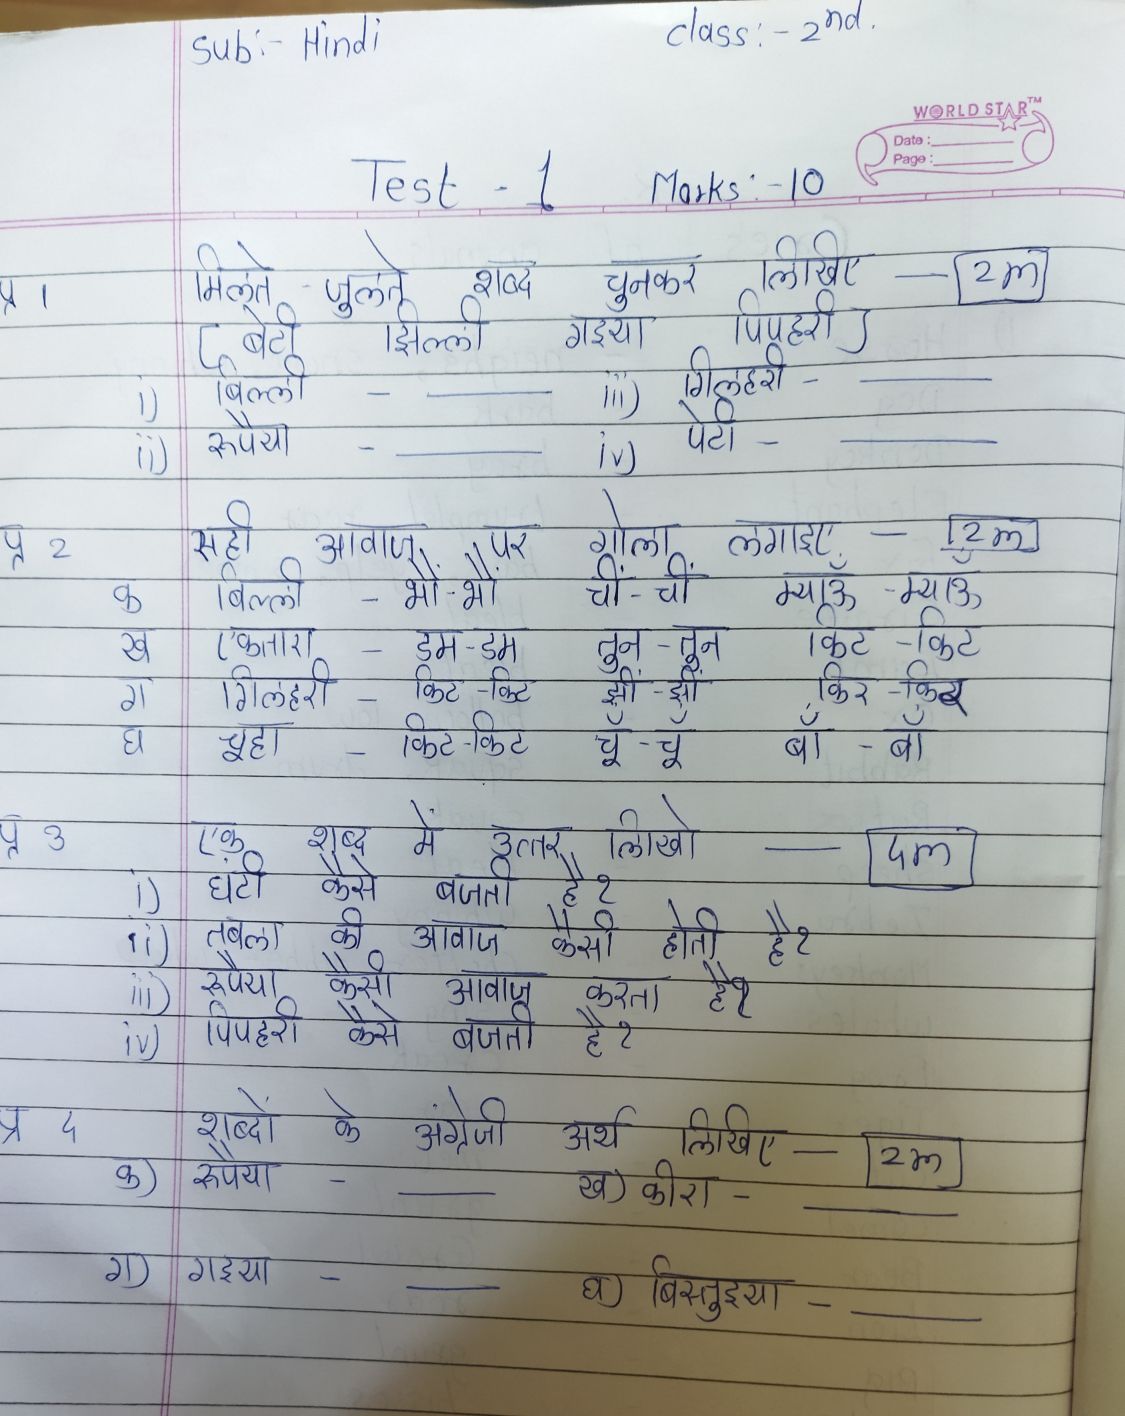 Sub:- Hindi Class:- 2nd.
WORLD STAR™
Date:
Page:
Test - 1 Marks:- 10
प्र 1 मिलते - जुलते शब्द चुनकर लिखिए — 2m
[ बेटी झिल्ली गइया पिपहरी ]
i) बिल्ली - iii) गिलहरी -
ii) रूपैया - iv) पेटी -
प्र 2 सही आवाज़ पर गोला लगाइए — 2m
क बिल्ली - भौं-भौं चीं-चीं म्याऊँ - म्याऊँ
ख एकतारा - डम-डम तुन-तुन किट - किट
ग गिलहरी - किट-किट झीं-झीं किर - किर
घ चूहा - किट-किट चूँ-चूँ बाँ - बाँ
प्र 3 एक शब्द में उत्तर लिखो — 4m
i) घंटी कैसे बजती है?
ii) तबला की आवाज कैसी होती है?
iii) रूपैया कैसी आवाज़ करता है?
iv) पिपहरी कैसे बजती है?
प्र 4 शब्दों के अंग्रेजी अर्थ लिखिए — 2m
क) रूपैया - ख) कीरा -
ग) गइया - घ) बिस्तुइया -